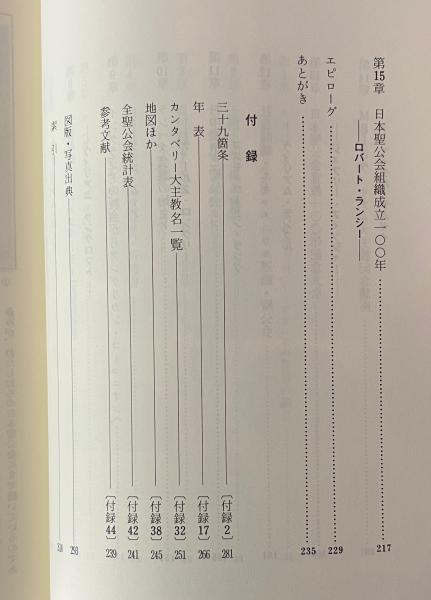 第15章 日本聖公会組織成立一〇〇年 217
──ロバート・ランシー──
エピローグ 229
あとがき 235
付録
三十九箇条 〔付録2〕 281
年表 〔付録17〕 266
カンタベリー大主教名一覧 〔付録32〕 251
地図ほか 〔付録38〕 245
全聖公会統計表 〔付録42〕 241
参考文献 〔付録44〕 239
図版・写真出典 293
索引